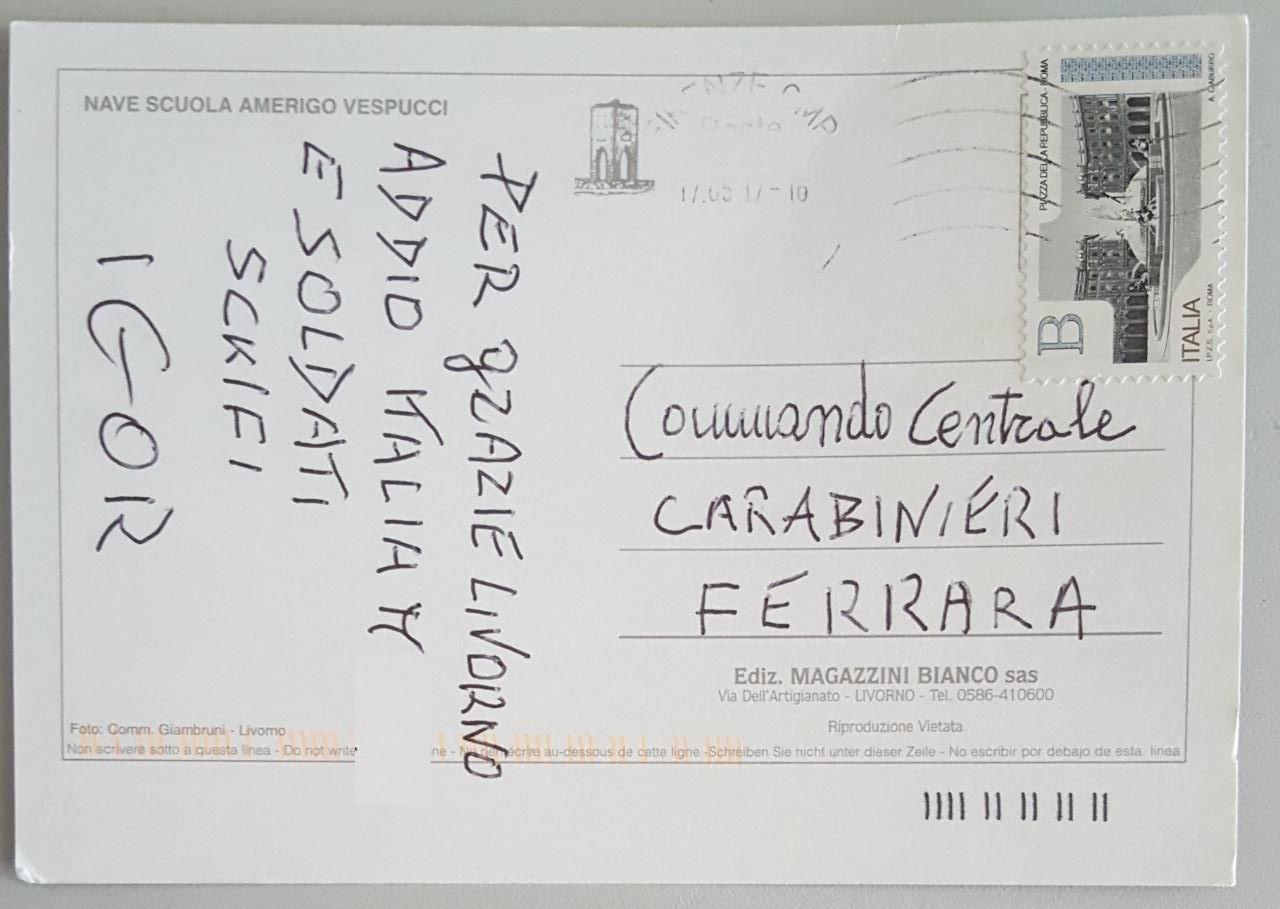 NAVE SCUOLA AMERIGO VESPUCCI
PER gRAZIE LIVORNO
ADDIO ITALIA
E SOLDATI
SCKIFI
IGOR
PIAZZA DELLA REPUBBLICA - ROMA
A. CIABURRO
B
ITALIA
I.P.Z.S. S.p.A. - ROMA
Commando Centrale
CARABINIERI
FERRARA
Ediz. MAGAZZINI BIANCO sas
Via Dell'Artigianato - LIVORNO - Tel. 0586-410600
Riproduzione Vietata
Foto: Comm. Giambruni - Livorno
Non scrivere sotto a questa linea - Do not write ne - Ne pas écrire au-dessous de cette ligne -Schreiben Sie nicht unter dieser Zeile - No escribir por debajo de esta linea